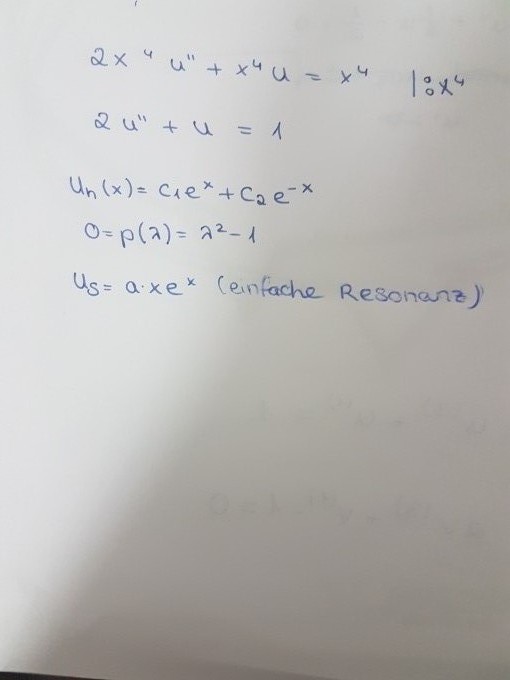 2x⁴ u'' + x⁴ u = x⁴ |:x⁴
2 u'' + u = 1
u_h(x) = c₁eˣ + c₂e⁻ˣ
0 = p(λ) = λ² - 1
u_s = a·xeˣ (einfache Resonanz)